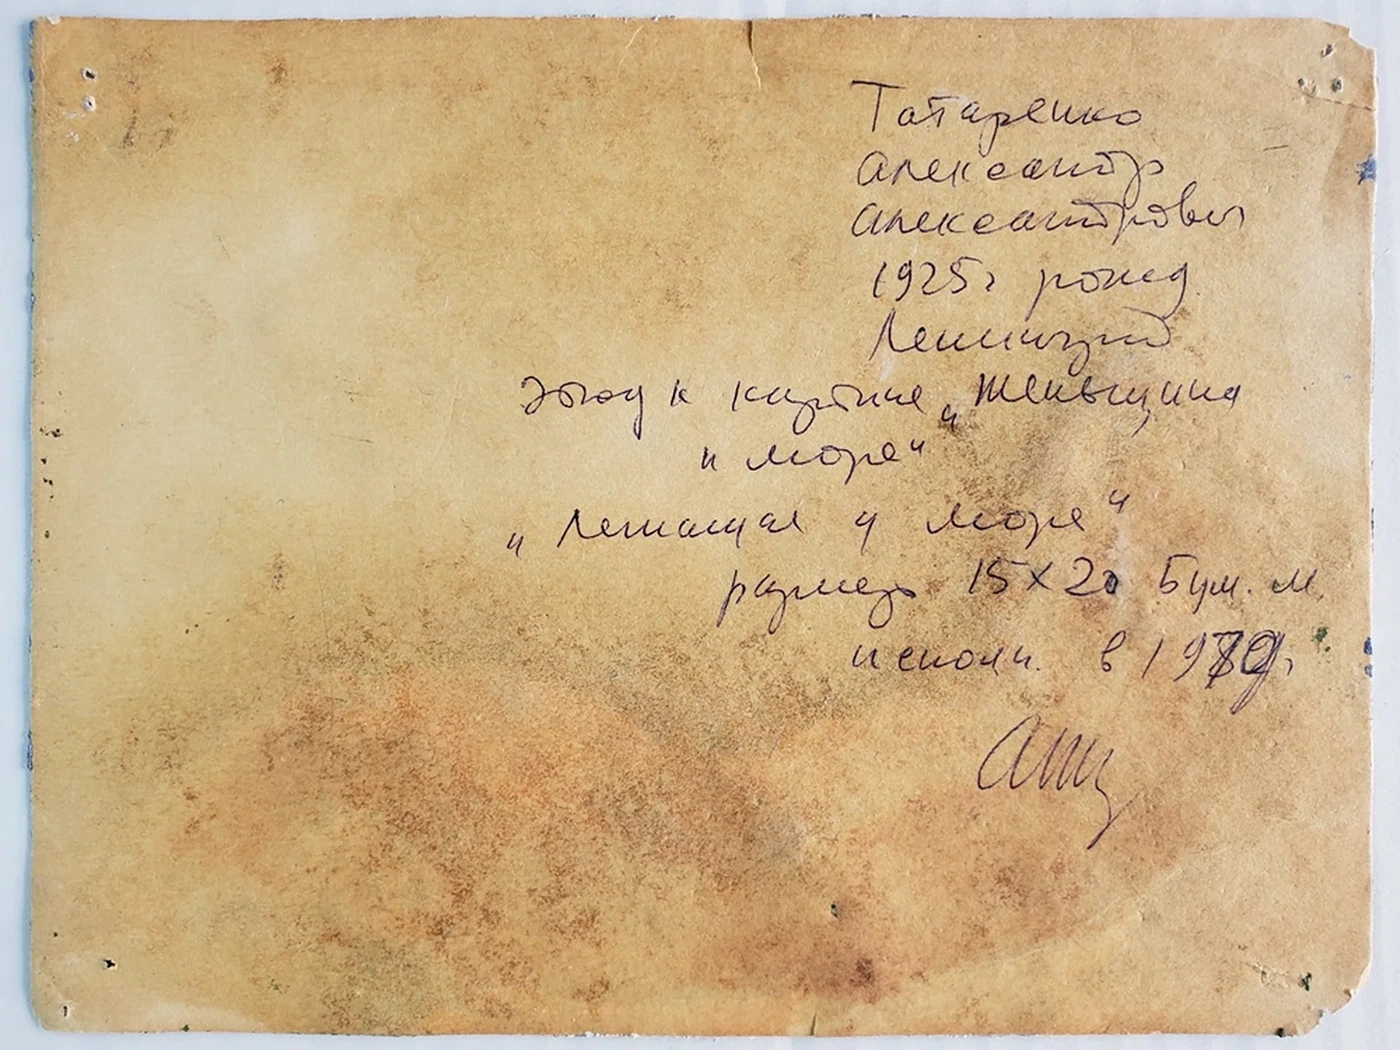 Татаренко
Александр
Александрович
1925г рожд.
Ленинград
Этюд к картине „Женьщина
и море"
„Лежащая у моря"
размер 15×20 Бум. м.
исполн. в 1979г.